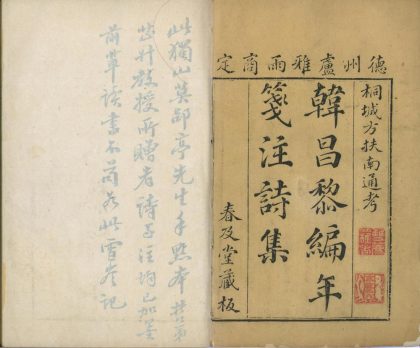 德州盧雅雨商定
桐城方扶南通考
韓昌黎編年
箋注詩集
春及堂藏板
此獨山莫郘亭先生手點本其弟
芷升教授所贈者詩子注均已加墨
前輩讀書不苟若此雪岑記